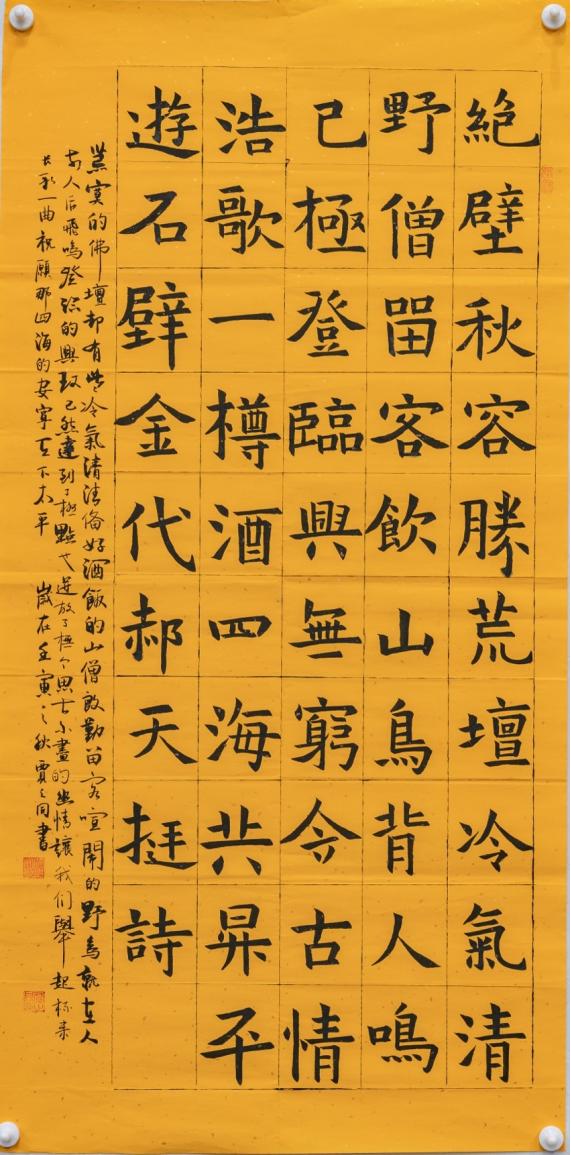 絕壁秋容勝荒壇冷氣清
野僧畱客飲山鳥背人鳴
已極登臨興無窮今古情
浩歌一樽酒四海共昇平
遊石壁金代郝天挺詩
荒寞的佛壇却有些冷氣清清備好酒飯的山僧殷勤留客喧鬧的野鳥就在人
前人后飛鳴登臨的興致已然達到了極點也迸放了思古不盡的幽情讓我们舉起杯来
共歌一曲祝願那四海的安寧天下太平 歲在壬寅之秋賈之同書